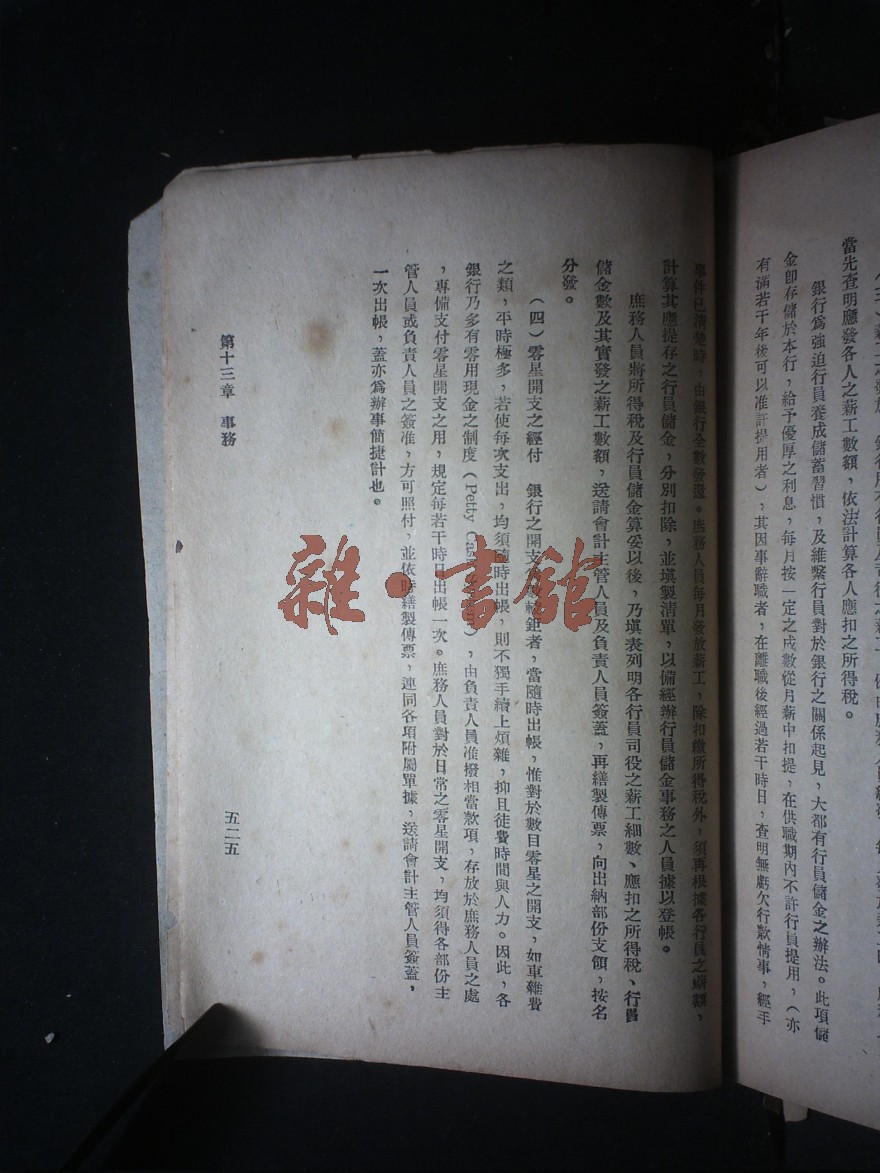 當先查明應發各人之薪工數額，依法計算各人應扣之所得稅。
銀行爲強迫行員養成儲蓄習慣，及維繫行員對於銀行之關係起見，大都有行員儲金之辦法。此項儲
金卽存儲於本行，給予優厚之利息，每月按一定之成數從月薪中扣提，在供職期內不許行員提用，（亦
有滿若干年後可以准許提用者），其因事辭職者，在離職後經過若干時日，查明無虧欠行款情事，經手
事件已清楚時，由銀行全數發還。庶務人員每月發放薪工，除扣繳所得稅外，須再根據各行員之薪額，
計算其應提存之行員儲金，分別扣除，並塡製清單，以備經辦行員儲金事務之人員據以登帳。
庶務人員將所得稅及行員儲金算妥以後，乃塡表列明各行員司役之薪工細數、應扣之所得稅、行員
儲金數及其實發之薪工數額，送請會計主管人員及負責人員簽蓋，再繕製傳票，向出納部份支領，按名
分發。
（四）零星開支之經付　銀行之開支 較鉅者，當隨時出帳，惟對於數目零星之開支，如車雜費
之類，平時極多，若使每次支出，均須隨時出帳，則不獨手續上煩雜，抑且徒費時間與人力。因此，各
銀行乃多有零用現金之制度（Petty Cash ），由負責人員准撥相當款項，存放於庶務人員之處
，專備支付零星開支之用，規定每若干時日出帳一次。庶務人員對於日常之零星開支，均須得各部份主
管人員或負責人員之簽准，方可照付，並依時繕製傳票，連同各項附屬單據，送請會計主管人員簽蓋，
一次出帳，蓋亦爲辦事簡捷計也。
第十三章　事務
五二五
雜·書館